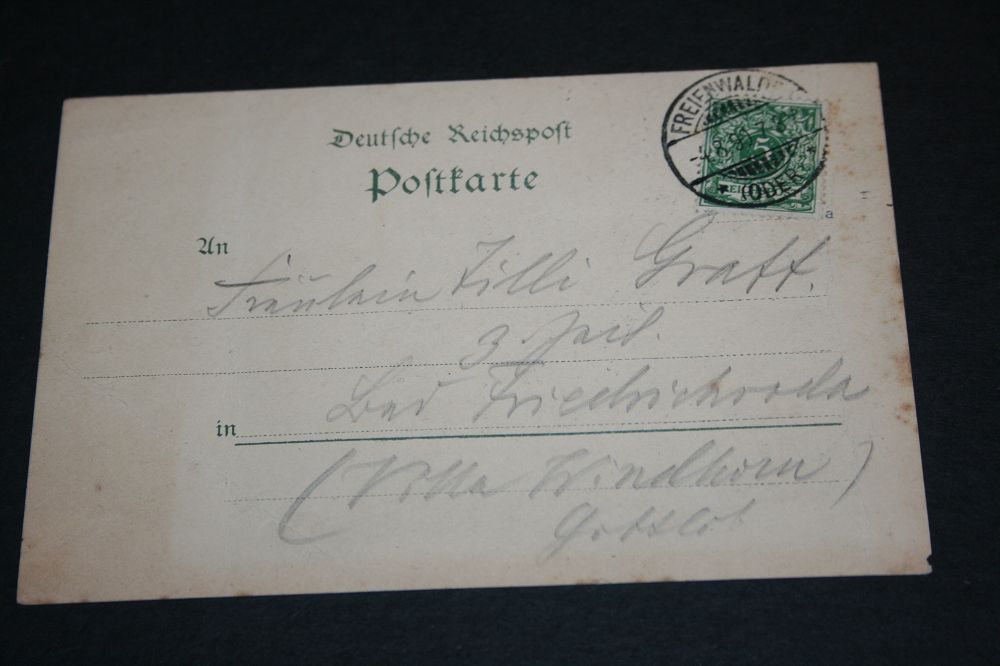 Deutsche Reichspost
Postkarte
FREIENWALDE
(ODER)
5
a
An
Fräulein Zilli Graff.
z. Zeit.
Bad Friedrichroda
in
(Villa Windhorn)